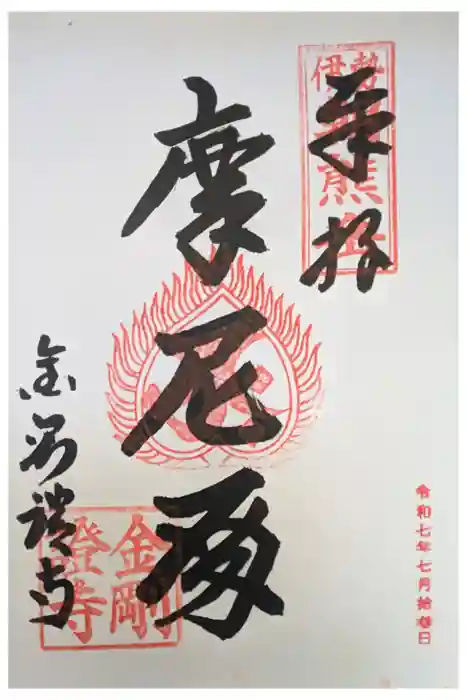 奉拝
伊勢朝熊岳
摩尼殿
金剛證寺
金剛
證寺
令和七年七月拾日